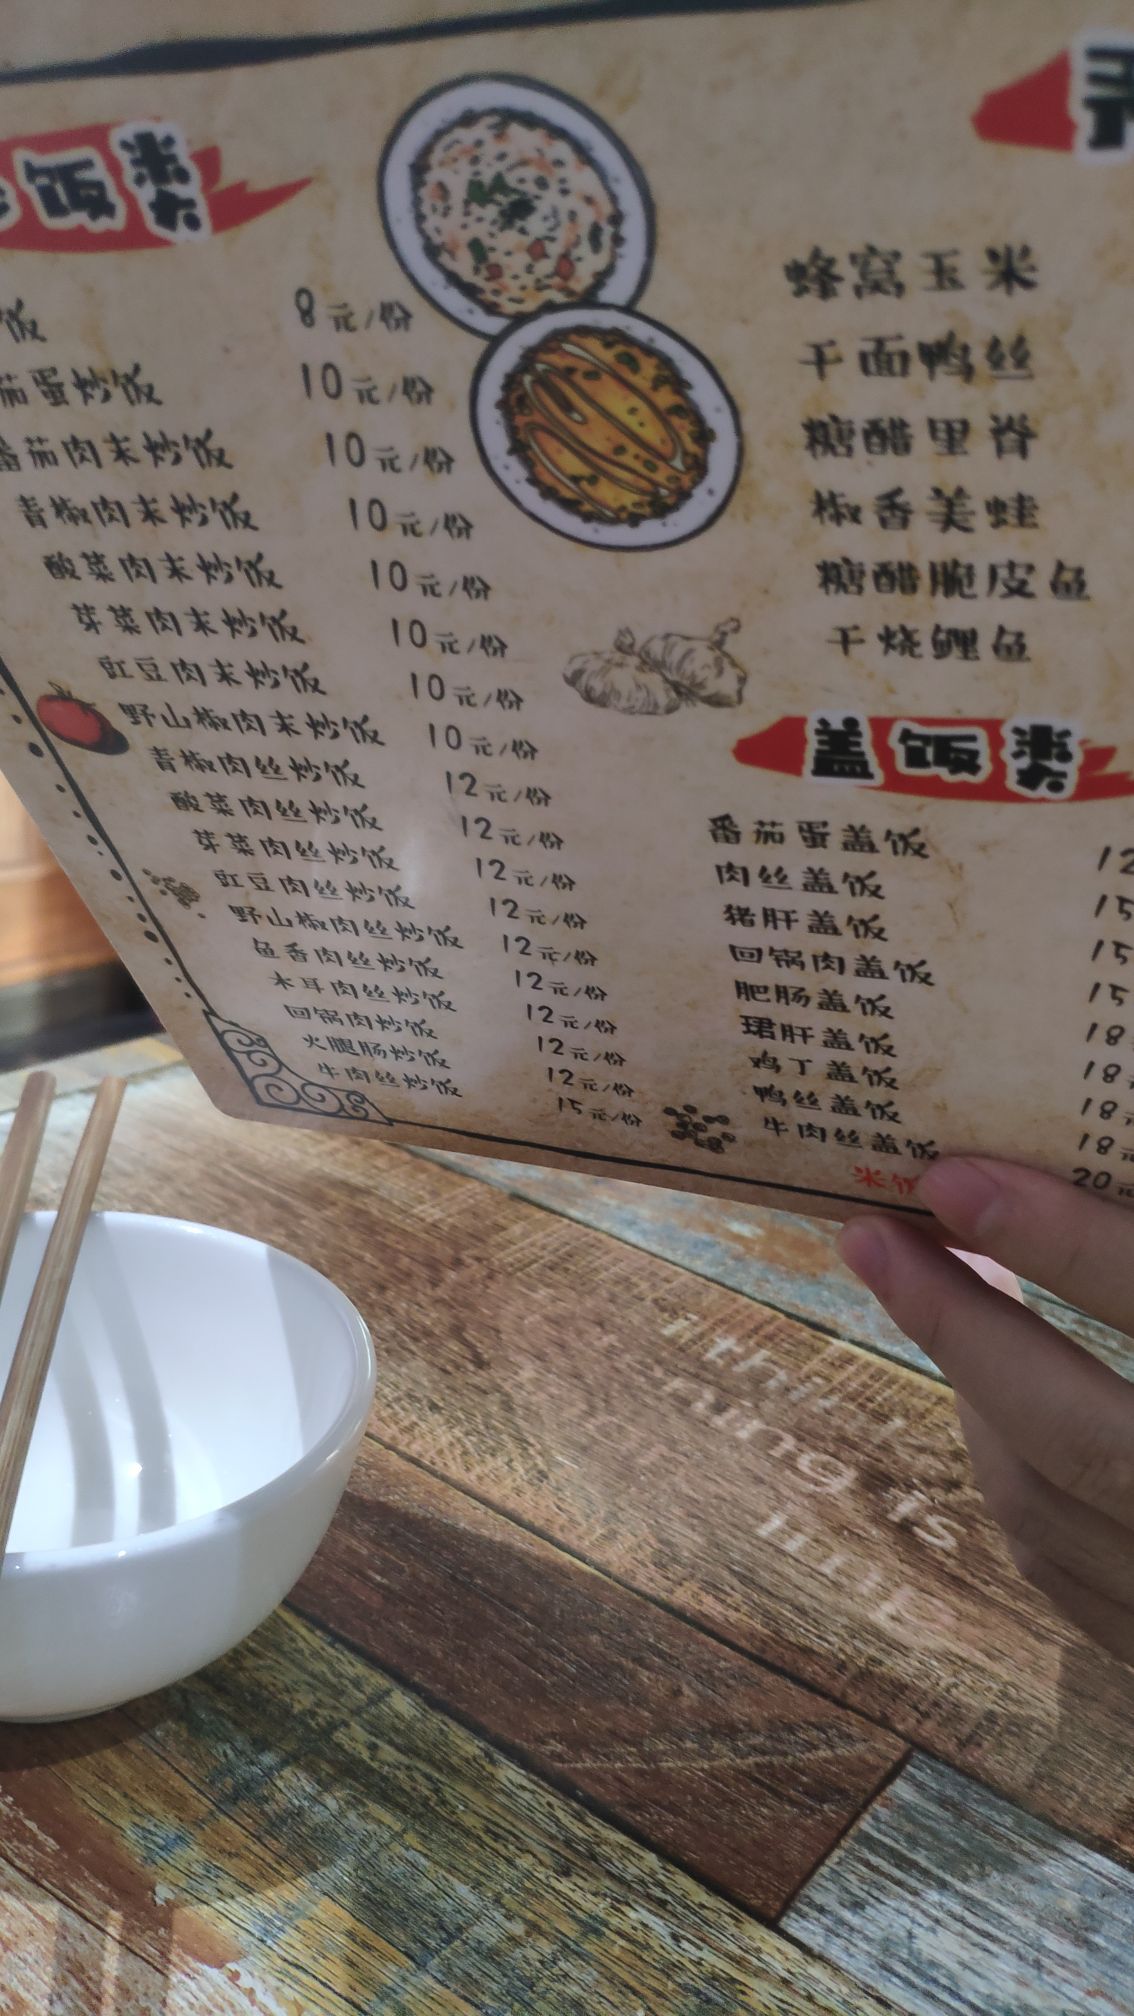 饭类
饭 8元/份
茄蛋炒饭 10元/份
番茄肉末炒饭 10元/份
青椒肉末炒饭 10元/份
酸菜肉末炒饭 10元/份
芽菜肉末炒饭 10元/份
豇豆肉末炒饭 10元/份
野山椒肉末炒饭 10元/份
青椒肉丝炒饭 12元/份
酸菜肉丝炒饭 12元/份
芽菜肉丝炒饭 12元/份
豇豆肉丝炒饭 12元/份
野山椒肉丝炒饭 12元/份
鱼香肉丝炒饭 12元/份
木耳肉丝炒饭 12元/份
回锅肉炒饭 12元/份
火腿肠炒饭 12元/份
牛肉丝炒饭 15元/份
蜂窝玉米
干面鸭丝
糖醋里脊
椒香美蛙
糖醋脆皮鱼
干烧鲤鱼
盖饭类
番茄蛋盖饭 12
肉丝盖饭 15
猪肝盖饭 15
回锅肉盖饭 15
肥肠盖饭 18
珺肝盖饭 18
鸡丁盖饭 18
鸭丝盖饭 18元
牛肉丝盖饭 20元
米饭
i think
ning is